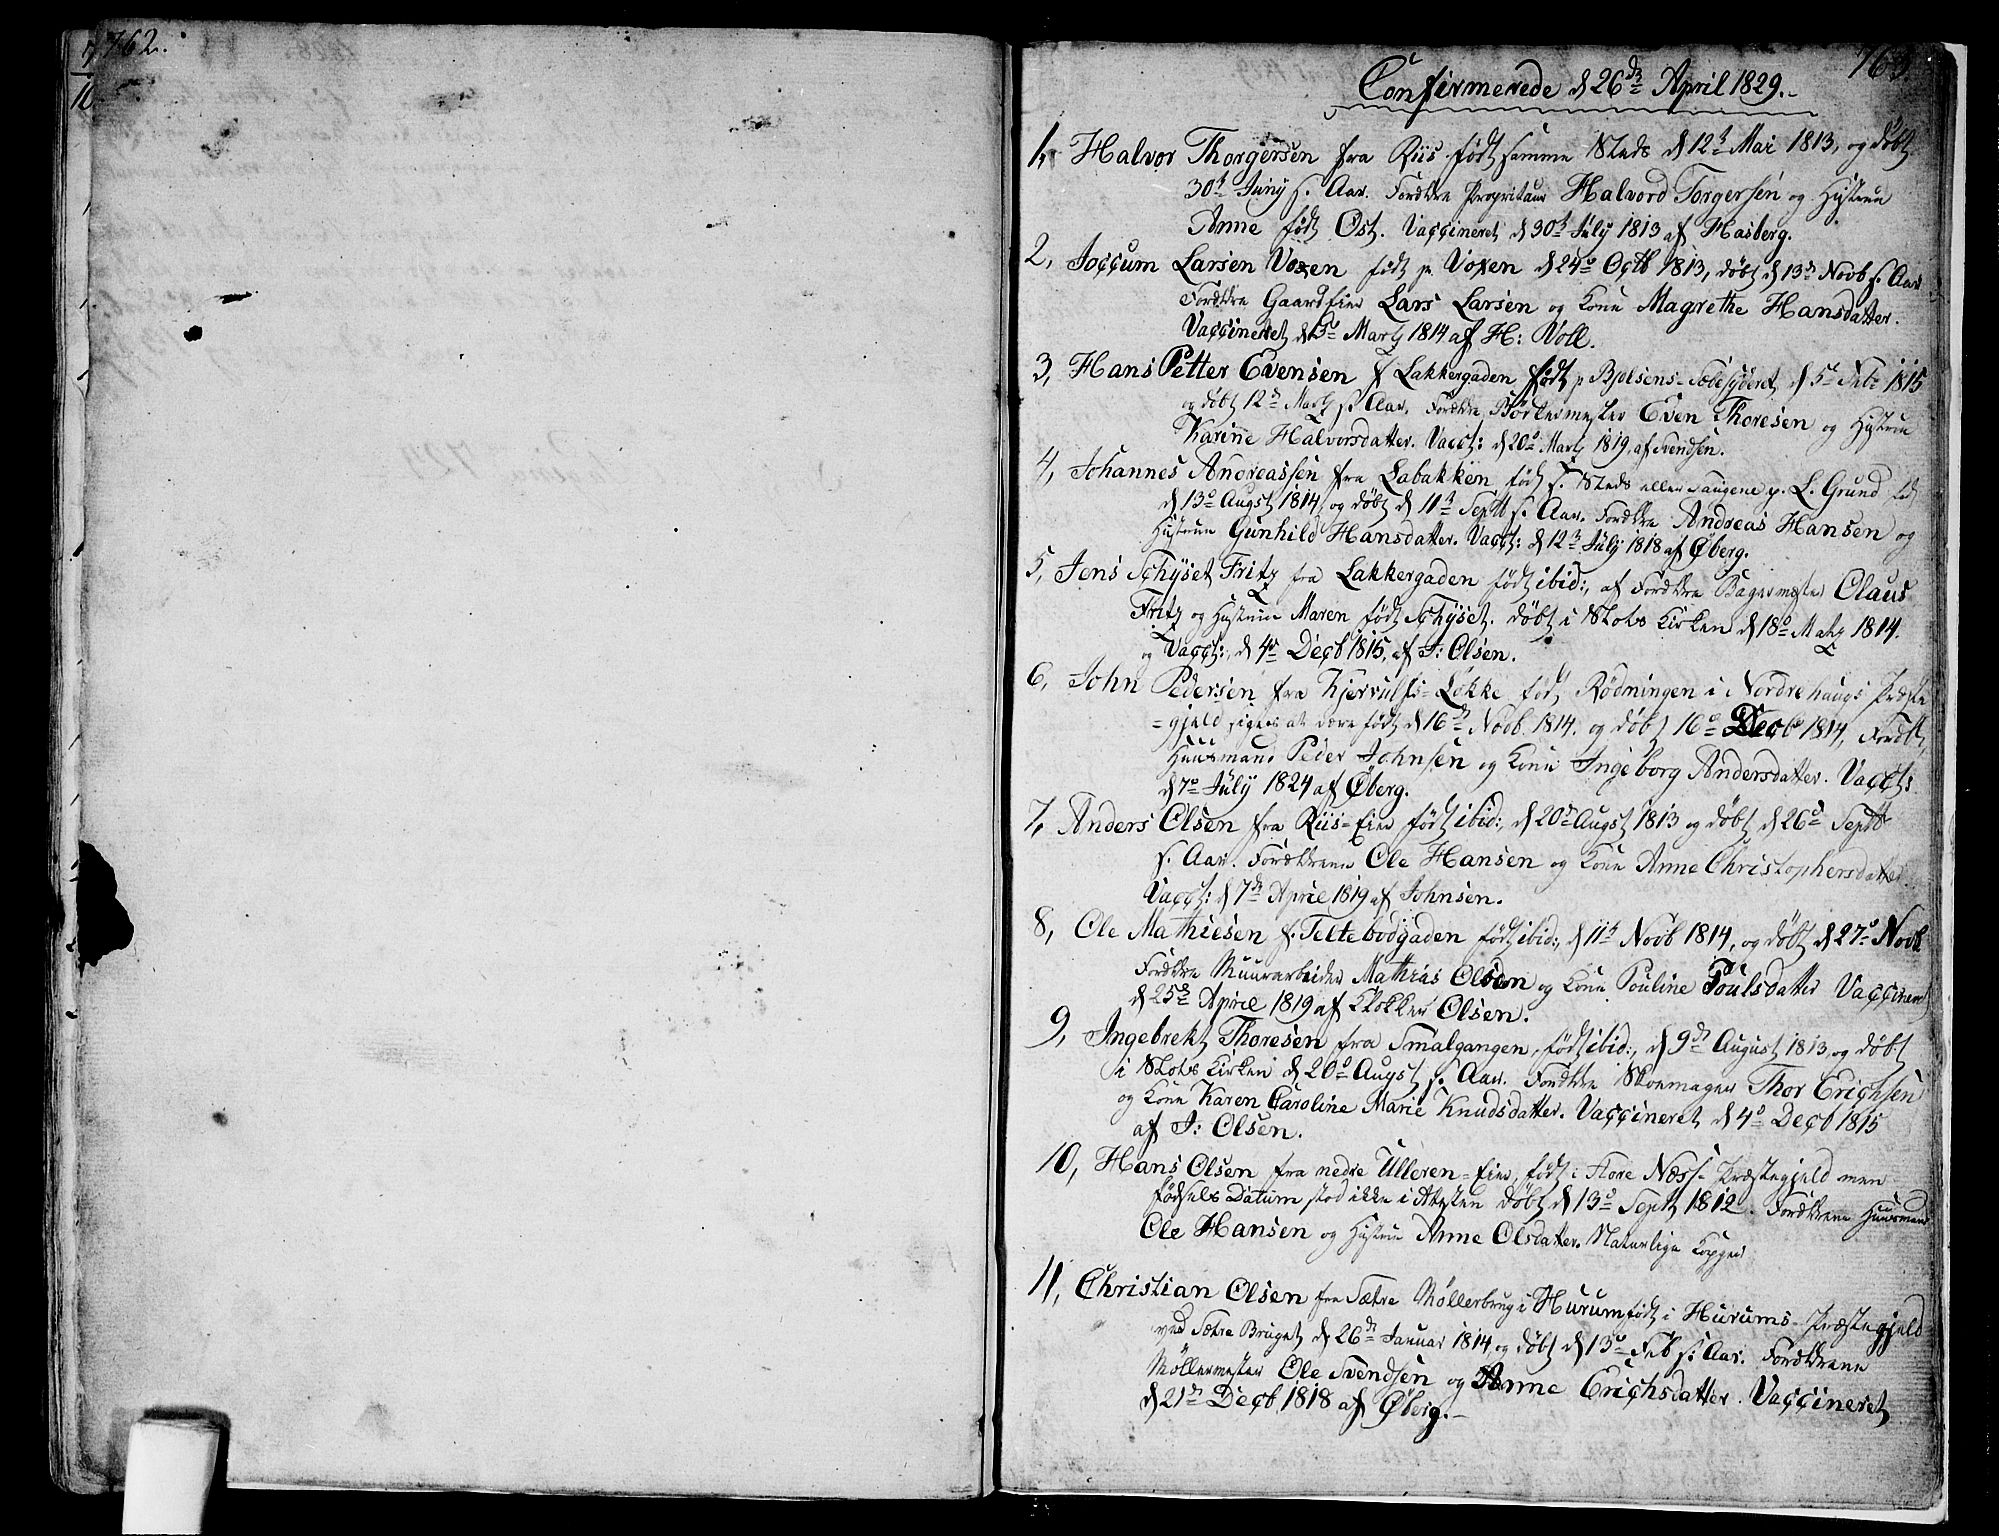 762.
763.
Confirmerede d 26de April 1829.
1, Halvor Thorgersen fra Riis født samme Steds d 12t Mai 1813, og døbt
30t Juny s. Aar. Forældre Proprietair Halvord Torgersen og Hustrue
Anne født Øst. Vaccineret d 30t July 1813 af Hasberg.
2, Joccum Larsen Voxen født p Voxen d 24de Octb 1813, døbt d 13de Novb s. Aar
Forældre Gaardeier Lars Larsen og Kone Magrethe Hansdatter.
Vaccineret d Marty 1814 af H: Noll.
3, Hans Petter Evensen f Lakkergaden født p Bjølsens d 5te Feb: 1815
og døbt 12te Marty s. Aar. Forældre Even Thoresen og Hustrue
Karine Halvorsdatter. Vacct: d 20de Marty 1819, af Svendsen.
4, Johannes Andreassen fra Labakken født s. Steds eller Saugene p. L. Grund
d 13de Augst 1814, og døbt d 11t Septb s. Aar. Forældre Andreas Hansen og
Hustrue Gunhild Hansdatter. Vacct: d 12t July 1818 af Øberg.
5, Jens Schyset Fritz fra Lakkergaden født ibid:, af Forældre Bagermester Claus
Fritz og Hustrue Maren født Schyset. døbt i Slots Kirken d 18de Martz 1814.
og Vacct:, d 4de Decb 1815, af J: Olsen.
6, John Pedersen fra Kjerulfs-Løkke født Rødningen i Nordrehaugs Præste
=gjeld siges at være født d 16de Novb. 1814. og døbt 16de Decb 1814, Forældre
Huusmand Peder Johnsen og Kone Ingeborg Andersdatter. Vacct:
d 7de July 1824 af Øberg.
7, Anders Olsen fra Riis-Eie født ibid:, d 20de Augst 1813 og døbt d 26de Septb
s. Aar. Forældrene Ole Hansen og Kone Anne Christophersdatter.
Vacct: d 7de April 1819 af Johnsen.
8, Ole Mathiesen f. Teltebodgaden født ibid:, d 11t Novb 1814, og døbt d 27de Novb
Forældre Muurarbeider Mathias Olsen og Kone Pouline Poulsdatter Vaccineret
d 25de April 1819 af Klokker Olsen.
9, Ingebrekt Thoresen fra Smalgangen, født ibid:, d 9de August 1813 og døbt
i Slots Kirken d 20de Augst s. Aar. Forældre Skoemager Thor Erichsen
og Kone Karen Caroline Marie Knudsdatter. Vaccineret d 4de Decb 1815
af J: Olsen.
10, Hans Olsen fra nedre Ulleren-Eie, født i Store Næss-Præstegjeld men
fødsels Datum stod ikke i Attesten døbt d 13de Septb 1812. Forældrene Huusmand
Ole Hansen og Hustrue Anne Olsdatter. Naturlige Kopper
11, Christian Olsen fra Sætre Møllerbrug i Hurum født i Hurums-Præstegjeld
ved Sætre Bruget d 26de Januar 1814, og døbt d 13de Feb s: Aar. Forældrene
Møllermester Ole Svendsen og Anne Erichsdatter. Vaccineret
d 21de Decb 1818 af Øberg.